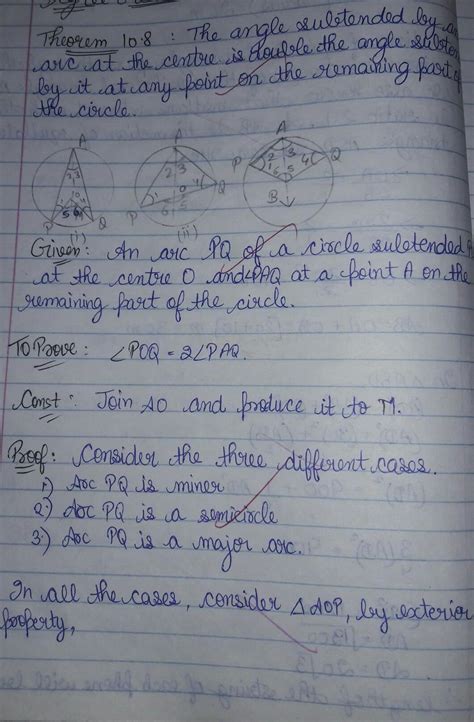 Theorem 10.8 : The angle subtended by an
arc at the centre is double the angle subten
by it at any point on the remaining part of
the circle.
A A A
2 3 2 3 2 3
P Q P Q P Q
1 4 5 6 O 1 6 5 O 4 1 6 5 4
B
(i) (ii)
Given: An arc PQ of a circle subtended
at the centre O and ∠PAQ at a point A on the
remaining part of the circle.
To Prove : ∠POQ = 2∠PAQ.
Const : Join AO and produce it to M.
Proof: Consider the three different cases.
1) Arc PQ is miner
2) Arc PQ is a semicircle
3) Arc PQ is a major arc.
In all the cases, consider △AOP, by exterior
property,